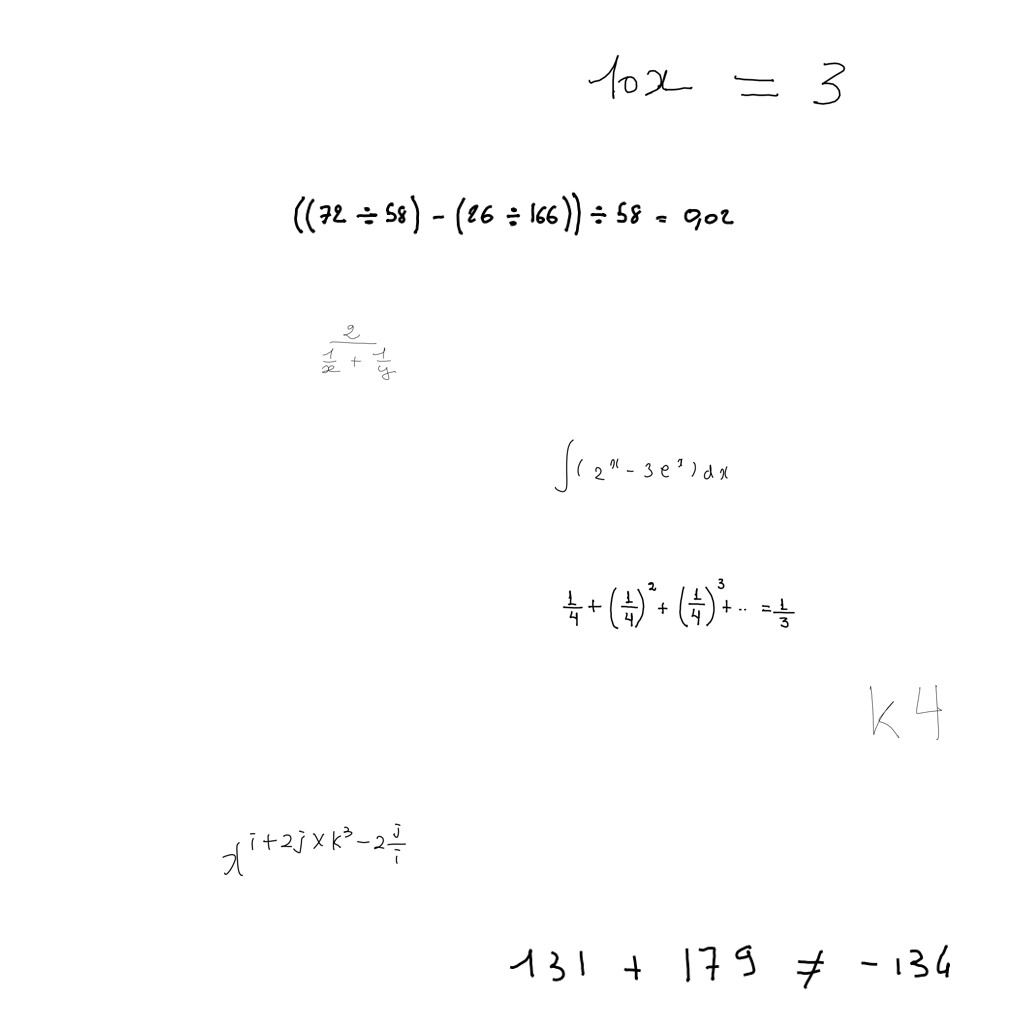 10x = 3
((72 ÷ 58) - (26 ÷ 166)) ÷ 58 = 0,02
\frac{2}{\frac{1}{x} + \frac{1}{y}}
∫(2^x - 3e^x)dx
\frac{1}{4} + (\frac{1}{4})^2 + (\frac{1}{4})^3 + .. = \frac{1}{3}
k4
x^{i+2j×k^3-2\frac{j}{i}}
131 + 179 ≠ -134